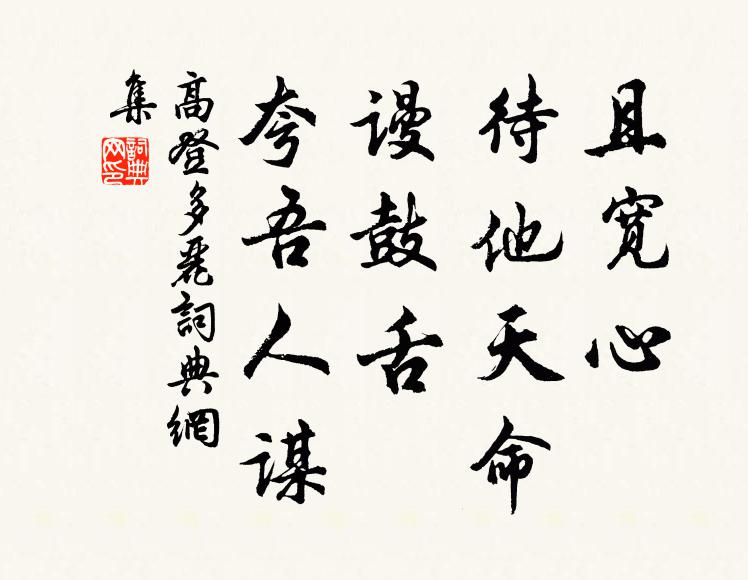 且寬心
待他天命
謾鼓舌
夸吾人謀
高登多麗詞典網
集
詞典网印